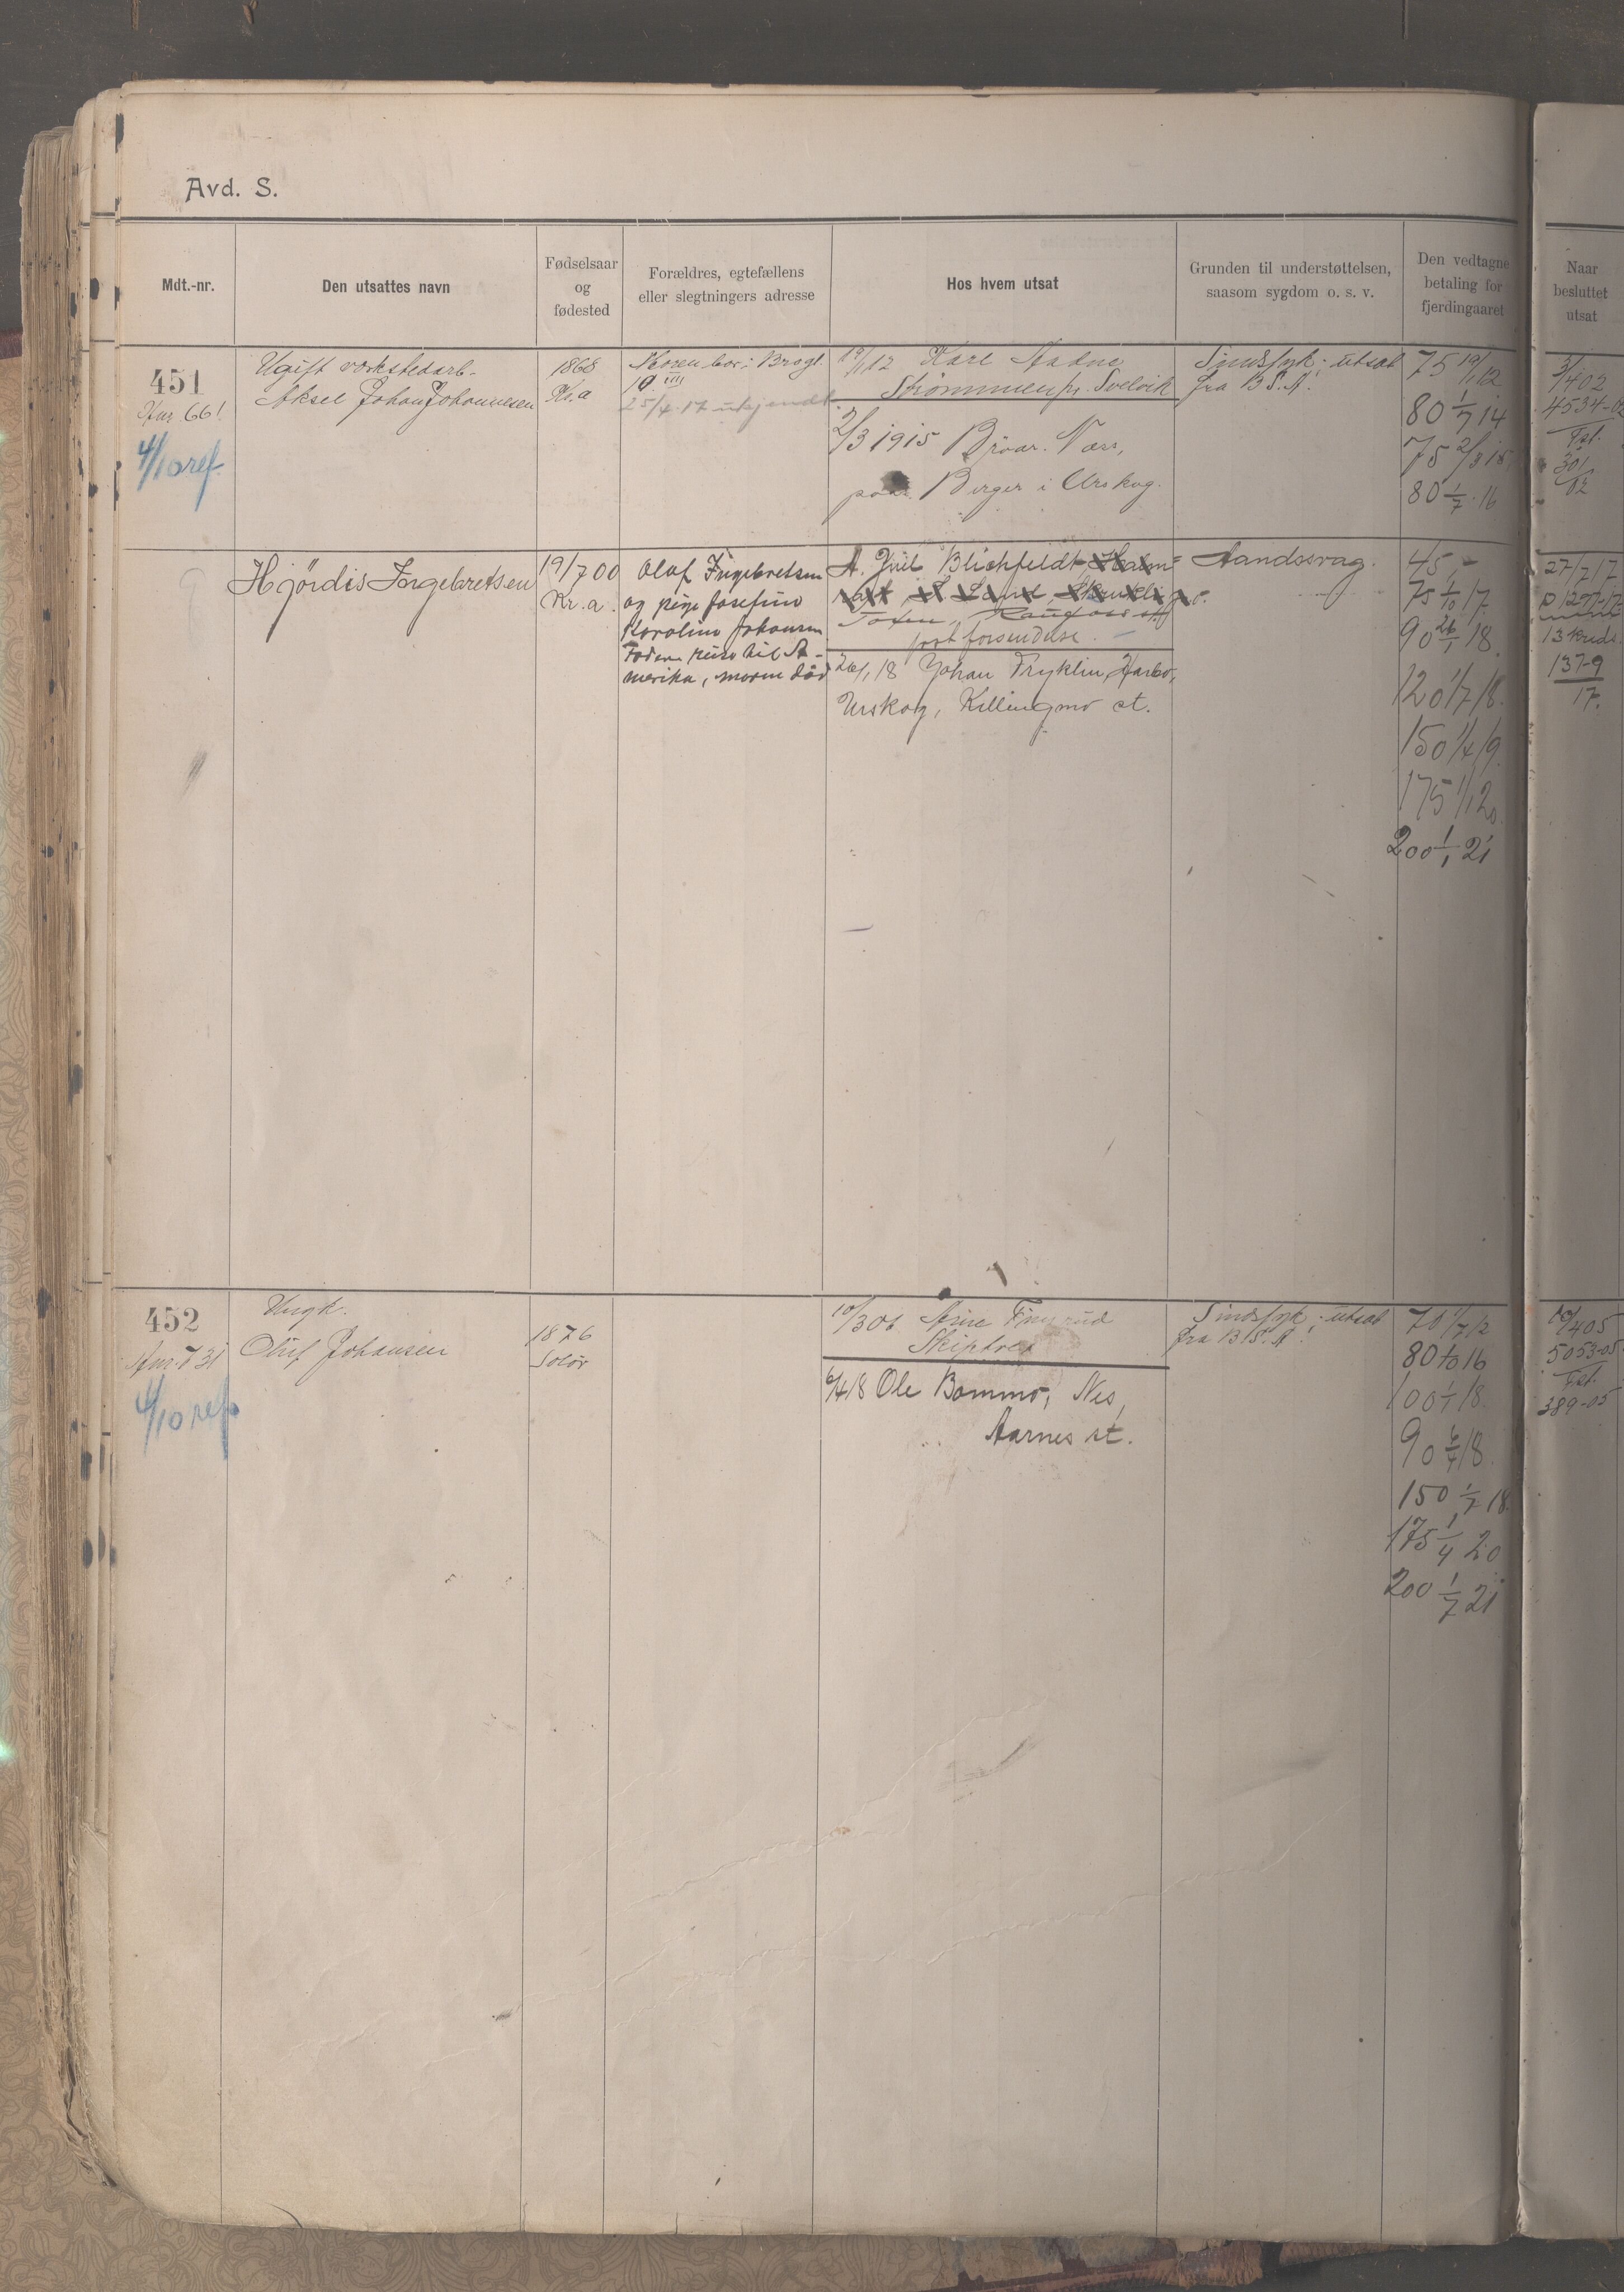 Avd. S.
Mdt.-nr.
Den utsattes navn
Fødselsaar
og
fødested
Forældres, egtefællens
eller slegtningers adresse
Hos hvem utsat
Grunden til understøttelsen,
saasom sygdom o. s. v.
Den vedtagne
betaling for
fjerdingaaret
Naar
besluttet
utsat
451
661
4/10 ref.
Ugift verkstedarb.
Aksel Johan Johannesen
1868
Kr.a
bor i Bragt.
10 III
25/4 17 ukjendt
19/1 12 Karl
Strømmen pr. Svelvik
2/3 1915 Næss,
paa Berger i Urskog.
Sindssyk; utsat
fra B.S.A.
75 19/1 12
80 1/7 14
75 2/3 15
80 1/7 16
3/4 02
4534-02
Fst.
301
02
Hjørdis Ingebretsen
19/7 00
Kr.a.
Olaf Ingebretsen
og pige Josefine
Karoline Johansen
Faderen reist til A-
merika, moren død
A. Juil Blichfeldt
Toten, Raufoss st.
post forsendelse.
26/1 18 Johan Fryklin, Harbo,
Urskog, Killingmo st.
Aandssvag.
45,-
75 1/10 17
90 26/1 18.
120 1/7 18.
150 1/4 19.
175 1/1 20
200 1/1 21
27/7 17
13 kreds
137-9
17.
452
731
4/10 ref.
Ungk.
Oluf Johansen
1876
Solør
10/3 06
Skiptvet
6/4 18 Ole Bommo, Nes,
Aarnes st.
Sindssyk; utsat
fra B.S.A.
70 1/7 12
80 1/10 16
100 1/1 18.
90 6/4 18.
150 1/7 18.
175 1/4 20
200 1/7 21
10/4 05
5053-05
Fst.
389-05